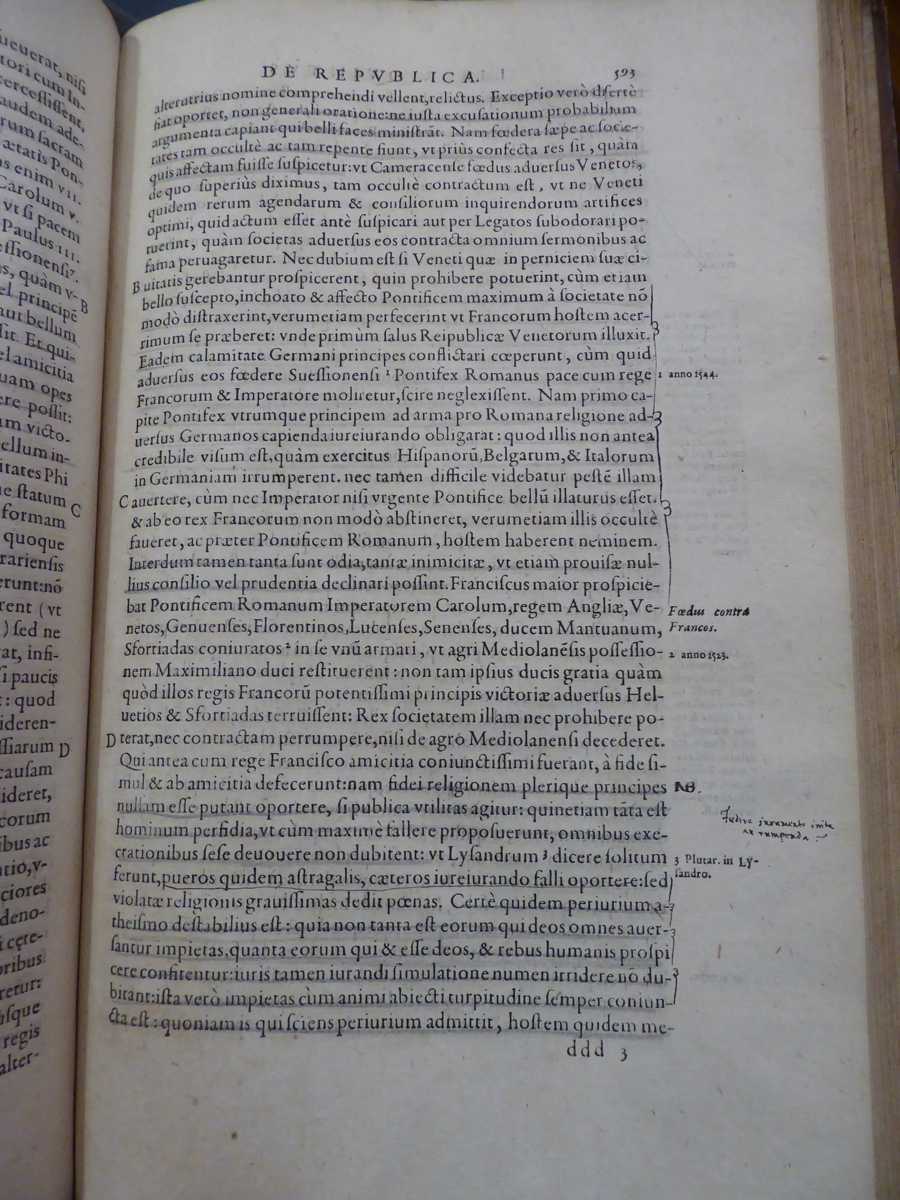 DE REPVBLICA. 593
alterutrius nomine comprehendi vellent, relictus. Exceptio verò disertè
fiat oportet, non generali oratione: ne iusta excusationum probabilium
argumenta capiant qui belli faces ministrāt. Nam fœdera sæpe ac socie-
tates tam occultè ac tam repente fiunt, vt priùs confecta res sit, quàm
quis affectam fuisse suspicetur: vt Cameracense fœdus aduersus Venetos,
de quo superiùs diximus, tam occultè contractum est, vt ne Veneti
quidem rerum agendarum & consiliorum inquirendorum artifices
optimi, quid actum esset antè suspicari aut per Legatos subodorari po-
tuerint, quàm societas aduersus eos contracta omnium sermonibus ac
fama peruagaretur. Nec dubium est si Veneti quæ in perniciem suæ ci-
B uitatis gerebantur prospicerent, quin prohibere potuerint, cùm etiam
bello suscepto, inchoato & affecto Pontificem maximum à societate nō
modò distraxerint, verumetiam perfecerint vt Francorum hostem acer-
rimum se præberet: vnde primùm salus Reipublicæ Venetorum illuxit.
Eadem calamitate Germani principes conflictari cœperunt, cùm quid
aduersus eos fœdere Suessionensi 1 Pontifex Romanus pace cum rege
1 anno 1544.
Francorum & Imperatore moliretur, scire neglexissent. Nam primo ca-
pite Pontifex vtrumque principem ad arma pro Romana religione ad-
uersus Germanos capienda iureiurando obligarat: quod illis non antea
credibile visum est, quàm exercitus Hispanorū, Belgarum, & Italorum
in Germaniam irrumperent. nec tamen difficile videbatur pestē illam
C auertere, cùm nec Imperator nisi vrgente Pontifice bellū illaturus esset.
& ab eo rex Francorum non modò abstineret, verumetiam illis occultè
faueret, ac præter Pontificem Romanum, hostem haberent neminem.
Interdum tamen tanta sunt odia, tantæ inimicitæ, vt etiam prouisæ nul-
lius consilio vel prudentia declinari possint. Franciscus maior prospicie-
bat Pontificem Romanum Imperatorem Carolum, regem Angliæ, Ve-
Fœdus contra
netos, Genuenses, Florentinos, Lucenses, Senenses, ducem Mantuanum,
Francos.
Sfortiadas coniuratos 2 in se vnū armari, vt agri Mediolanēsis possessio-
2 anno 1523.
nem Maximiliano duci restituerent: non tam ipsius ducis gratia quàm
quòd illos regis Francorū potentissimi principis victoriæ aduersus Hel-
uetios & Sfortiadas terruissent: Rex societatem illam nec prohibere po-
D terat, nec contractam perrumpere, nisi de agro Mediolanensi decederet.
Qui antea cum rege Francisco amicitia coniunctissimi fuerant, à fide si-
mul & ab amicitia defecerunt: nam fidei religionem plerique principes
NB.
nullam esse putant oportere, si publica vtilitas agitur: quinetiam tāta est
hominum perfidia, vt cùm maximè fallere proposuerunt, omnibus exe-
crationibus sese deuouere non dubitent: vt Lysandrum 3 dicere solitum
3 Plutar. in Ly-
ferunt, pueros quidem astragalis, cæteros iureiurando falli oportere: sed
sandro.
violatæ religionis grauissimas dedit pœnas. Certè quidem periurium a-
theismo detestabilius est: quia non tanta est eorum qui deos omnes auer-
santur impietas, quanta eorum qui & esse deos, & rebus humanis prospi
cere confitentur: iuris tamen iurandi simulatione numen irridere nō du-
bitant: ista verò impietas cùm animi abiecti turpitudine semper coniun-
cta est: quoniam is qui sciens periurium admittit, hostem quidem me-
ddd 3